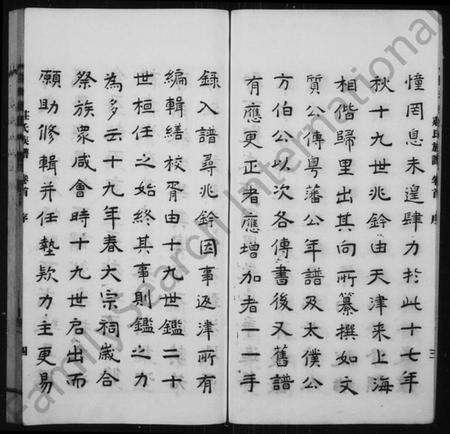 憧罔息未遑肆力於此十七年
秋十九世兆鈴由天津來上海
相偕歸里出其向所纂撰如文
質公傳粵藩公年譜及太僕公
方伯公以次各傳書後又舊譜
有應更正者應增加者一一手
三
錄入譜尋兆鈴因事返津所有
編輯繕校胥由十九世鑑二十
世桓任之始終其事則鑑之力
為多云十九年春大宗祠歲合
祭族眾咸會時十九世启出而
願助修輯并任墊欵力主更易
氏族譜 卷首 序
四
FamilySearch International